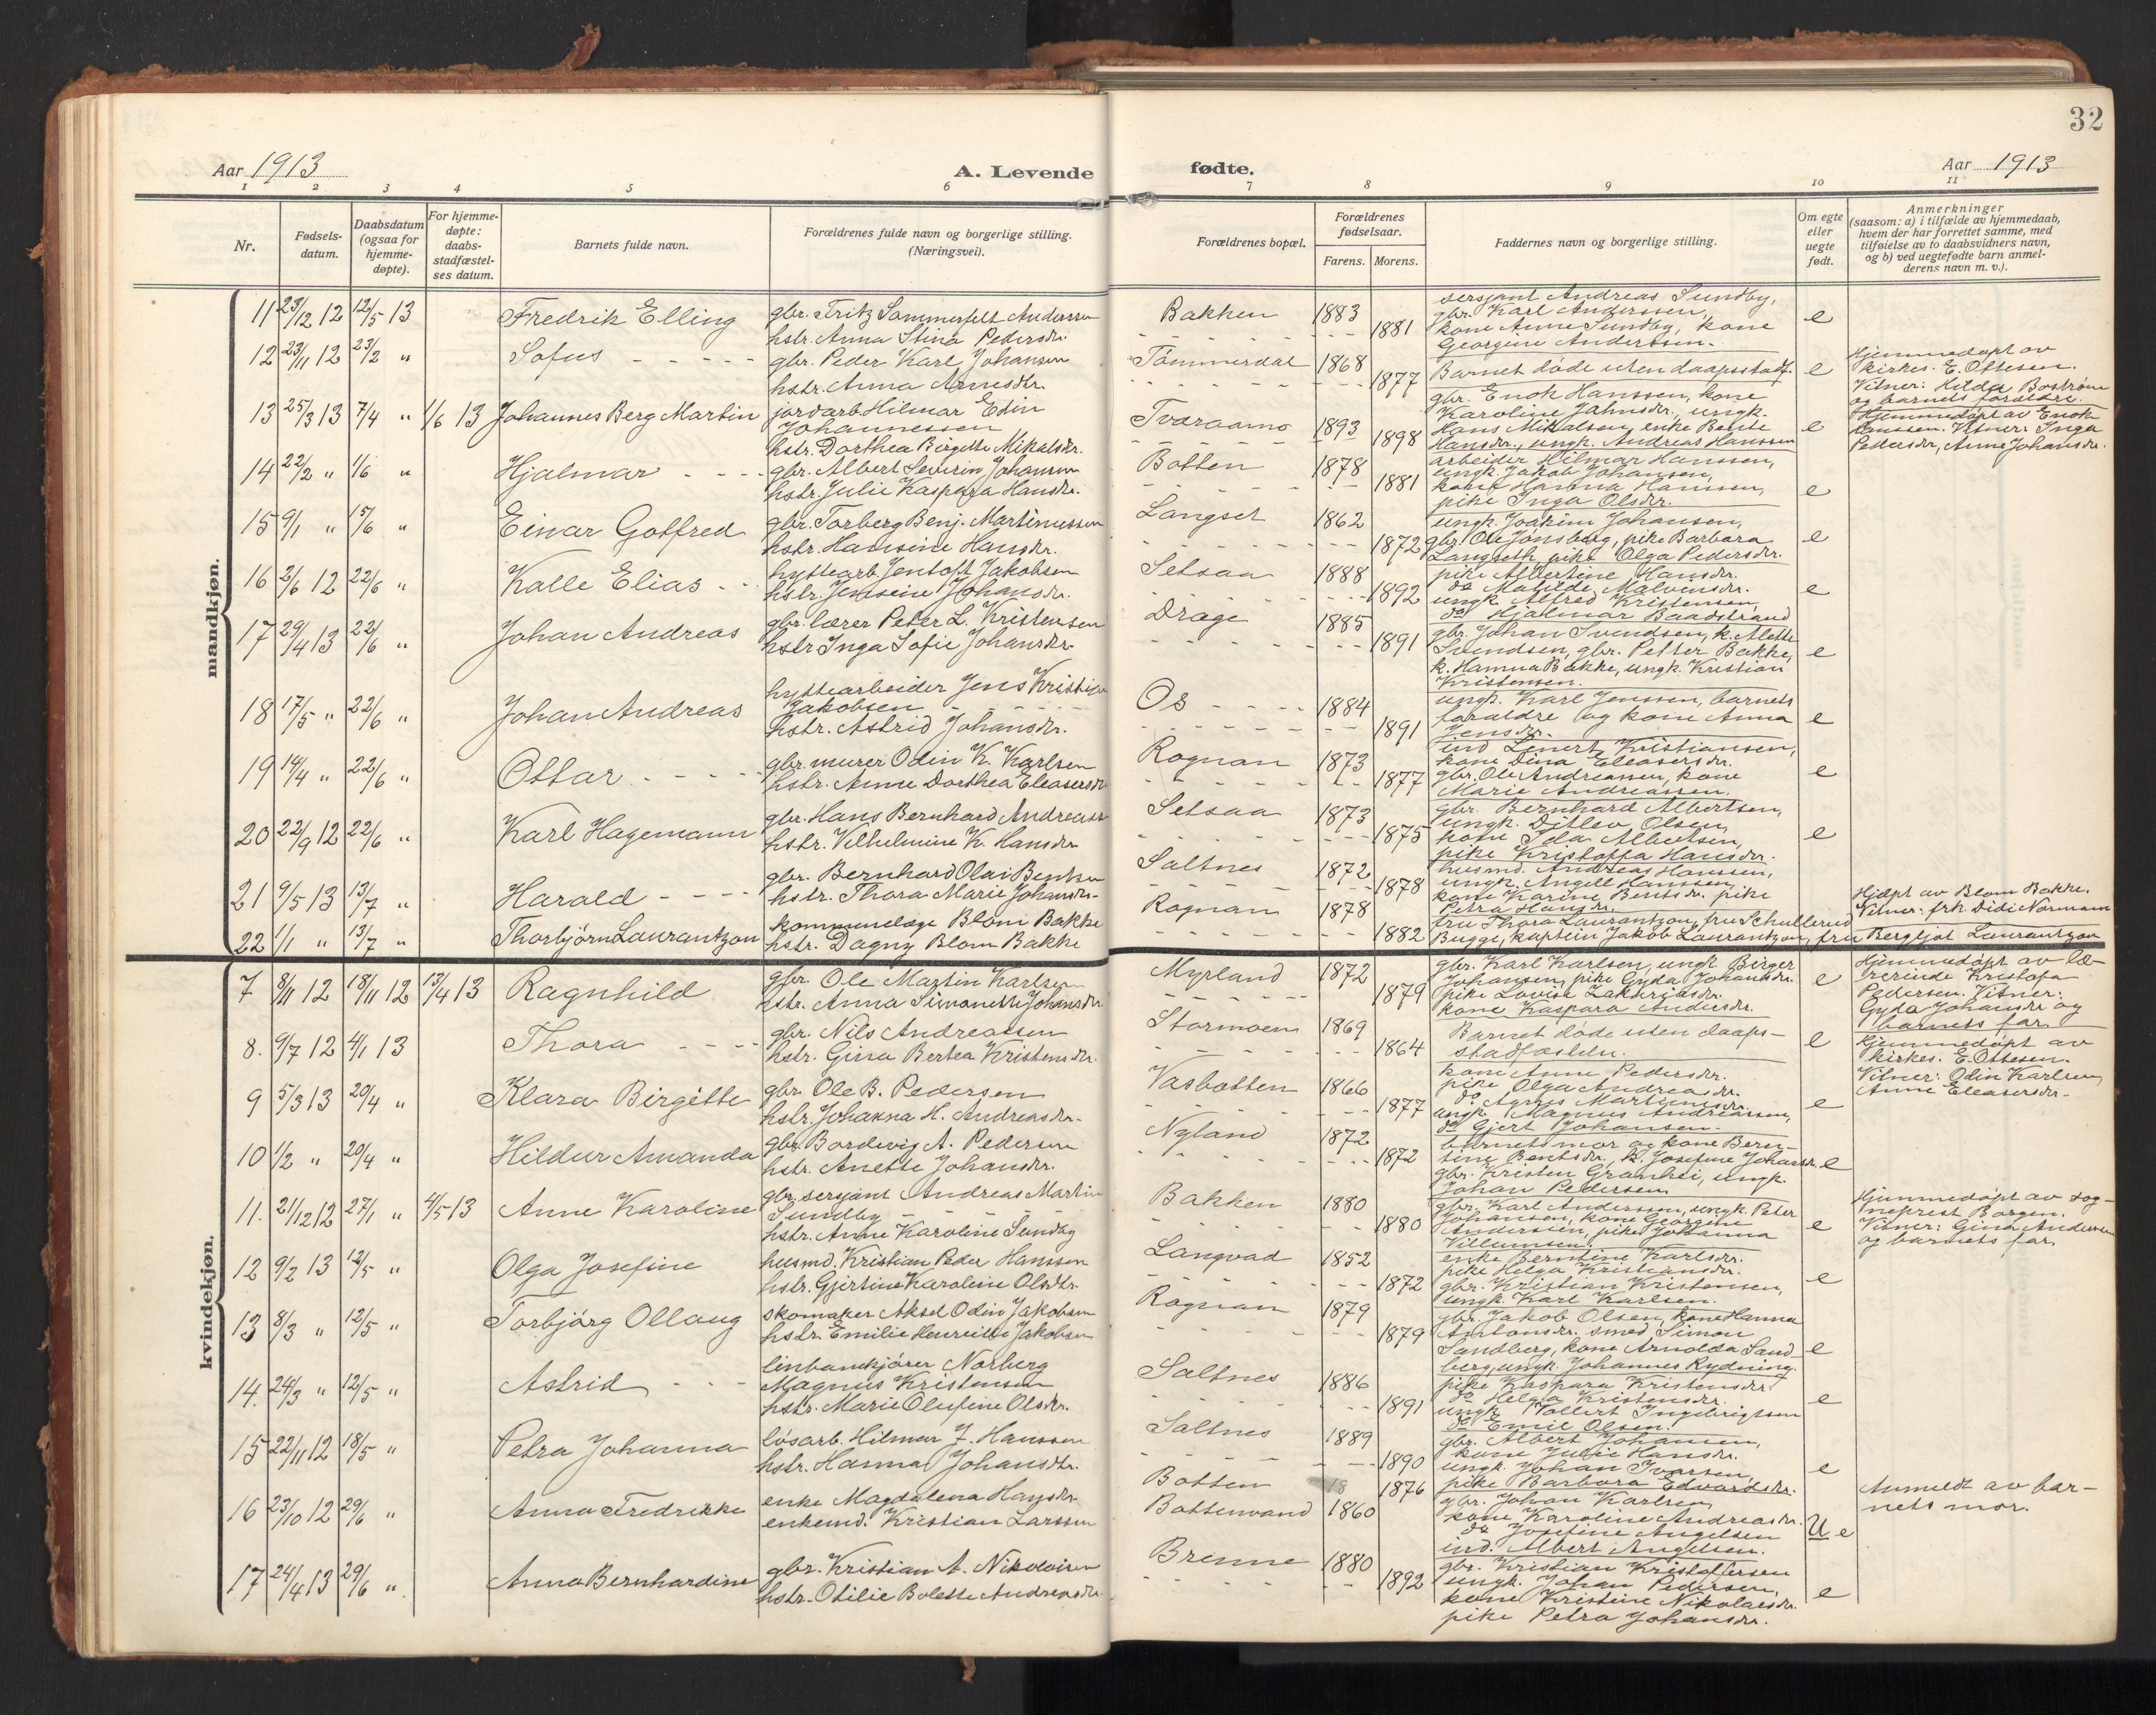 32
Aar 1913
A. Levende fødte.
Aar 1913
1 2 3 4 5 6 7 8 9 10 11
Nr.
Fødsels-
datum.
Daabsdatum
(ogsaa for
hjemme-
døpte).
For hjemme-
døpte:
daabs-
stadfæstel-
ses datum.
Barnets fulde navn.
Forældrenes fulde navn og borgerlige stilling.
(Næringsvei).
Forældrenes bopæl.
Forældrenes
fødselsaar.
Farens. Morens.
Faddernes navn og borgerlige stilling.
Om egte
eller
uegte
født.
Anmerkninger
(saasom: a) i tilfælde av hjemmedaab,
hvem der har forrettet samme, med
tilføielse av to daabsvidners navn,
og b) ved uegtefødte barn anmel-
derens navn m. v.).
mandkjøn.
11 23/12 12 12/5 13 Fredrik Elling
gbr. Fritz Sommerfelt Anderssen
hstr. Anna Stina Pedersdr.
Bakken 1883 1881
sersjant Andreas Sundby,
gbr. Karl Anderssen,
kone Anne Sundby, kone
Georgine Anderssen.
e
12 23/11 12 23/2 " Sofus
gbr. Peder Karl Johansen
hstr. Anna Arnesdtr.
Tømmerdal 1868 1877
Barnet døde uten daapsstadf.
e
Hjemmedøpt av
kirkes. E. Ottesen.
Vitner: Hilda Boström
og barnets forældre.
13 25/3 13 7/4 " 1/6 13 Johannes Berg Martin
jordarb. Hilmar Edin
Johannessen
hstr. Dorthea Birgitte Mikalsdr.
Tveraamo 1893 1898
gbr. Enok Hanssen, kone
Karoline Jahnsdr., ungk.
Hans Mikalsen, enke Bente
Hansdr., ungk. Andreas Hanssen
e
Hjemmedøpt av Enok
Hanssen. Vitner: Inga
Pedersdr., Anne Johansdr.
14 22/2 " 1/6 " Hjalmar
gbr. Albert Severin Johansen
hstr. Julie Kaspara Hansdr.
Botten 1878 1881
arbeider Hilmar Hanssen,
ungk. Jakob Johansen,
kone Hanna Hanssen,
pike Inga Olsdr.
e
15 9/1 " 15/6 " Einar Gotfred
gbr. Torberg Benj. Martinussen
hstr. Hansine Hansdr.
Langset 1862 1872
ungk. Joakim Johansen,
gbr. Ole Jønsberg, pike Barbara
Langseth, pike Olga Pedersdr.
e
16 2/6 12 22/6 " Kalle Elias
hyttearb. Jentoft Jakobsen
hstr. Jensine Johansdr.
Setsaa 1888 1892
pike Albertine Hansdr.
do Matilde Malvensdr.
ungk. Alfred Kristensen,
do Hjalmar Baadstrand
e
17 29/4 13 22/6 " Johan Andreas
gbr. lærer Peter L. Kristensen
hstr Inga Sofie Johansdr.
Drage 1885 1891
gbr. Johan Svendsen, k. Mette
Svendsen, gbr. Petter Bakke,
k. Hanna Bakke, ungk. Kristian
Kristensen.
e
18 17/5 " 22/6 " Johan Andreas
hyttearbeider Jens Kristian
Jakobsen
hstr. Astrid Johansdr.
Os 1884 1891
ungk. Karl Jenssen, barnets
forældre og kone Anna
Jensdr.
e
19 14/4 " 22/6 " Ottar
gbr. murer Odin K. Karlsen
hstr. Anne Dorthea Eleasersdr
Rognan 1873 1877
ind Linert Kristiansen,
kone Dina Eleasersdr.
gbr. Ole Andreassen, kone
Marie Andreassen.
e
20 22/9 12 22/6 " Karl Hagemann
gbr. Hans Bernhard Andreass
hstr. Vilhelmine K. Hansdr
Setsaa 1873 1875
gbr. Bernhard Albertsen,
ungk. Ditlev Olsen,
kone Ida Albertsen,
pike Kristoffa Hansdr.
e
21 9/5 13 13/7 " Harald
gbr. Bernhard Olai Bentsen
hstr. Thora Marie Johansdr.
Saltnes 1872 1878
husmd. Andreas Hanssen,
ungk. Angell Hanssen,
kone Karine Bentsdr. pike
Petra Hansdr.
22 1/1 " 13/7 " Thorbjørn Laurantzon
kommunelæge Blom Bakke
hstr. Dagny Blom Bakke
Rognan 1878 1882
fru Thora Laurantzon, fru Schullerud
Bugge, kaptein Jakob Laurantzon, fru Bergljot Laurantzon
Hjdøpt av Blom Bakke.
Vitner: frk. Didi Normann
kvindekjøn.
7 8/11 12 18/11 12 13/4 13 Ragnhild
gbr. Ole Martin Karlsen
hstr. Anna Simonette Johansdr
Myrland 1872 1879
gbr. Karl Karlsen, ungk. Birger
Johansen, pike Gyda Johansdr.
pike Lovise Zakariasdr.
kone Kaspara Andersdr.
e
Hjemmedøpt av læ-
rerinde Kristofa
Pedersen. Vitner:
Gyda Johansdr og
barnets far.
8. 9/7 12 4/1 13 Thora
gbr. Nils Andreassen
hstr. Gina Bertea Kristensdr.
Stormoen 1869 1864
Barnet døde uten daaps-
stadfæsteln.
e
Hjemmedøpt av
kirkes. E. Ottesen.
Vitner: Odin Karlsen,
Anne Eleasersdr.
9 5/3 13 20/4 " Klara Birgitte
gbr. Ole B. Pedersen
hstr. Johanna H. Andreasdr.
Vasbotten 1866 1877
kone Anne Pedersdr.
pike Olga Andreasdr.
do Agnes Martinsdr.
ungk. Magnus Andreassen,
do Gjert Johansen.
e
10 1/2 " 20/4 " Hildur Amanda
gbr. Bordevig A. Pedersen
hstr. Anette Johansdr.
Nyland 1872 1872
barnets mor og kone Beren-
tine Bentsdr., k. Josefine Johansdr.
gbr. Kristen Granhei, ungk.
Johan Pedersen
e
11. 21/12 12 27/1 " 4/5 13 Anne Karoline
gbr. sersjant Andreas Martin
Sundby
hstr. Anne Karoline Sundby
Bakken 1880 1880
gbr. Karl Anderssen, ungk. Peter
Johansen, kone Georgine
Anderssen, pike Johanna
Villumsen.
e
Hjemmedøpt av sog-
neprest Borgen.
Vitner: Gina Andersen
og barnets far.
12 9/2 13 12/5 " Olga Josefine
husmd. Kristian Peder Hanssen
hstr. Gjertine Karoline Olsdtr.
Langvad 1852 1872
enke Berntine Karlsdr.
pike Helga Kristiansdr.
gbr. Kristian Kristensen,
ungk. Karl Karlsen.
e
13 8/3 " 12/5 " Torbjørg Ollaug
skomaker Aksel Odin Jakobsen
hstr. Emilie Henreitte Jakobsen
Rognan 1879 1879
gbr. Jakob Olsen, kone Hanna
Antonsdr. smed Simon
Sandberg, kone Arnolda Sand
berg, ungk. Johannes Rydning.
e
14. 24/3 " 12/5 " Astrid
linbanekjører Norberg
Magnus Kristensen
hstr. Marie Olufine Olsdr.
Saltnes 1886 1891
pike Kaspara Kristensdr.
do Helga Kristensdr.
ungk. Vollert Ingebrigtsen
do Emil Olsen.
e
15 22/11 12 18/5 " Petra Johanna
løsarb. Hilmar J. Hanssen
hstr. Hanna Johansdtr.
Saltnes 1889 1890
gbr. Albert Johansen,
kone Julie Hansdr.
ungk. Johan Ivarsen,
pike Barbara Edvardsdr.
e
16 23/10 12 29/6 " Anna Fredrikke
enke Magdalena Hansdr.
enkemd. Kristian Larssen
Botten 18 1876
Bottenvand 1860
gbr. Johan Karlsen
kone Karoline Andreasdr.
do Josefine Angelsen
ind. Albert Angelsen.
U e
Anmeldt av bar-
nets mor.
17 24/4 13 29/6 " Anna Bernhardine
gbr. Kristian A. Nikolaisen
hstr. Otilie Bolette Andreasdr.
Brenne 1880 1892
gbr. Kristian Kristoffersen
ungk. Johan Pedersen,
kone Kristine Nikolaisdr.
pike Petra Johansdr.
e